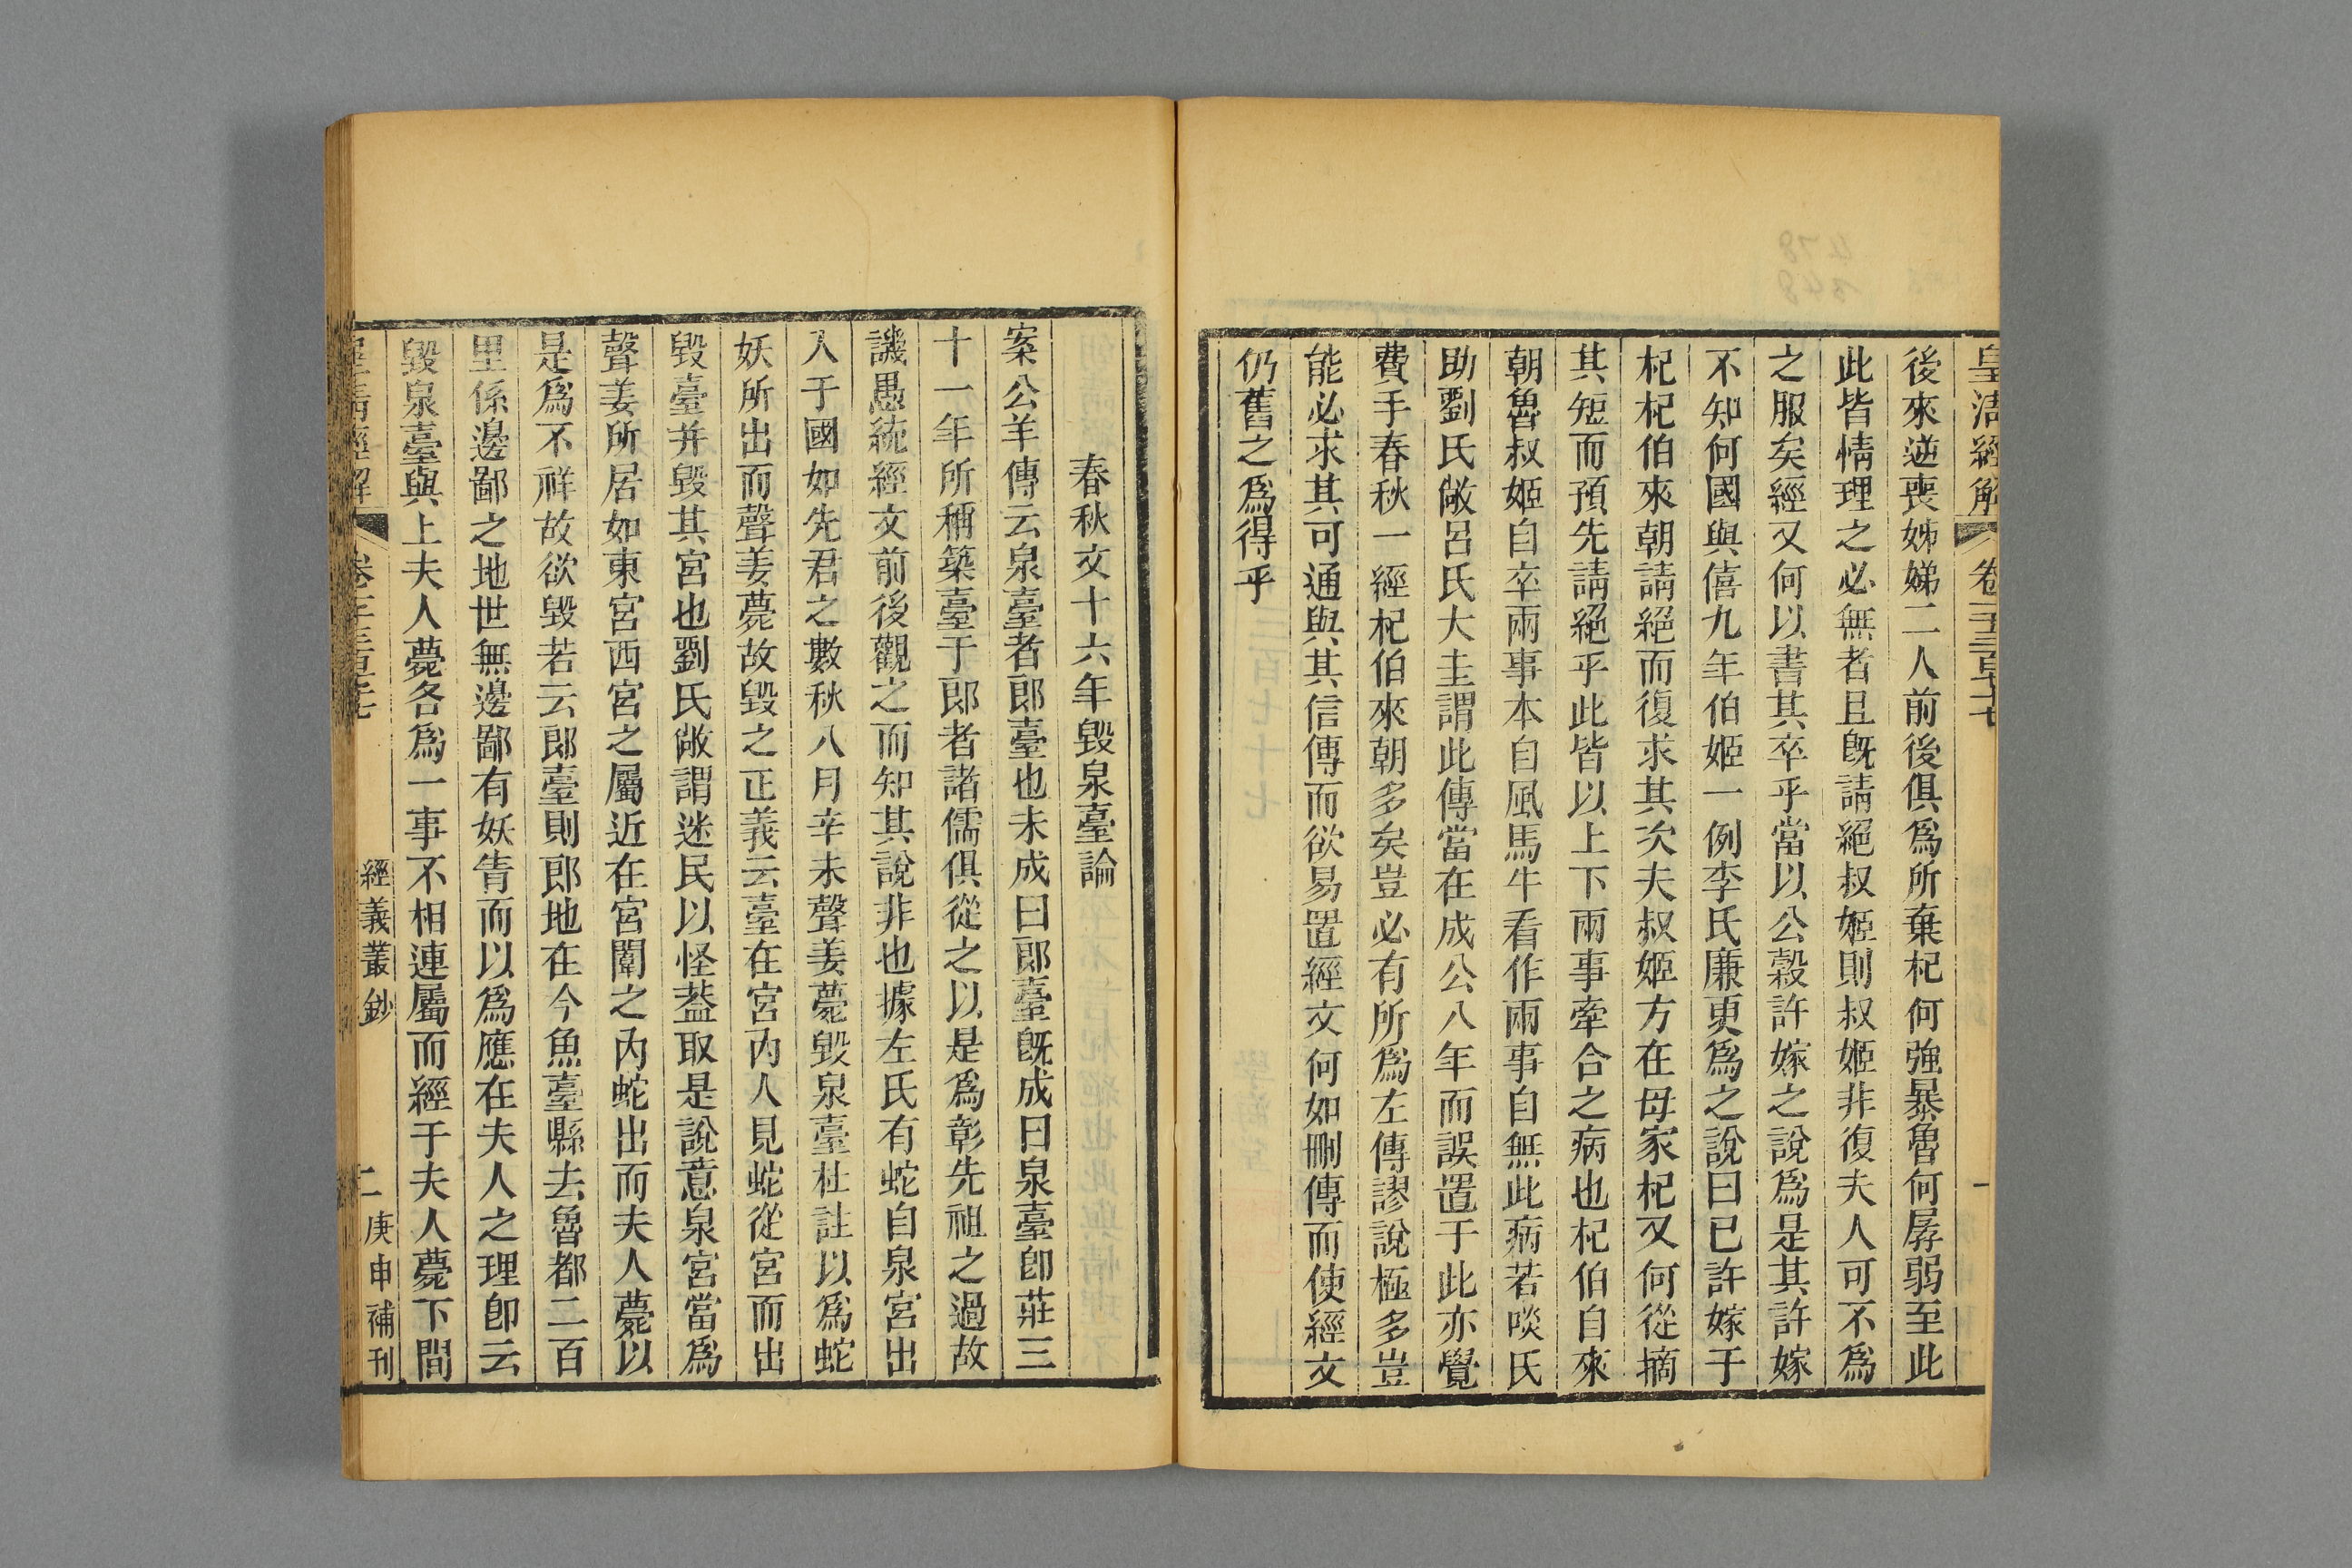 皇清經解
後來逆喪姊娣二人前後俱爲所棄杞何強暴魯何孱弱至此
此皆情理之必無者且既請絕叔姬則叔姬非復夫人可不爲
之服矣經又何以書其卒乎當以公穀許嫁之說爲是其許嫁
不知何國與僖九年伯姬一例李氏廉更爲之說曰已許嫁于
杞杞伯來朝請絕而復求其次夫叔姬方在母家杞又何從摘
其短而預先請絕乎此皆以上下兩事牽合之病也杞伯自來
朝魯叔姬自卒兩事本自風馬牛看作兩事自無此病若啖氏
助劉氏敞呂氏大圭謂此傳當在成公八年而誤置于此亦覺
費手春秋一經杞伯來朝多矣豈必有所爲左傳謬說極多豈
能必求其可通與其信傳而欲易置經文何如刪傳而使經文
仍舊之爲得乎
春秋文十六年毀泉臺論
案公羊傳云泉臺者郎臺也未成曰郎臺既成曰泉臺卽莊三
十一年所稱築臺于郎者諸儒俱從之以是爲彰先祖之過故
譏愚統經文前後觀之而知其說非也據左氏有蛇自泉宮出
入于國如先君之數秋八月辛未聲姜薨毀泉臺杜註以爲蛇
妖所出而聲姜薨故毀之正義云臺在宮內人見蛇從宮而出
毀臺并毀其宮也劉氏敞謂迷民以怪葢取是說意泉宮當爲
聲姜所居如東宮西宮之屬近在宮闈之內蛇出而夫人薨以
是爲不祥故欲毀若云郎臺則郎地在今魚臺縣去魯都二百
里係邊鄙之地世無邊鄙有妖眚而以爲應在夫人之理卽云
毀泉臺與上夫人薨各爲一事不相連屬而經于夫人薨下間
經義叢鈔
二
庚申補刊